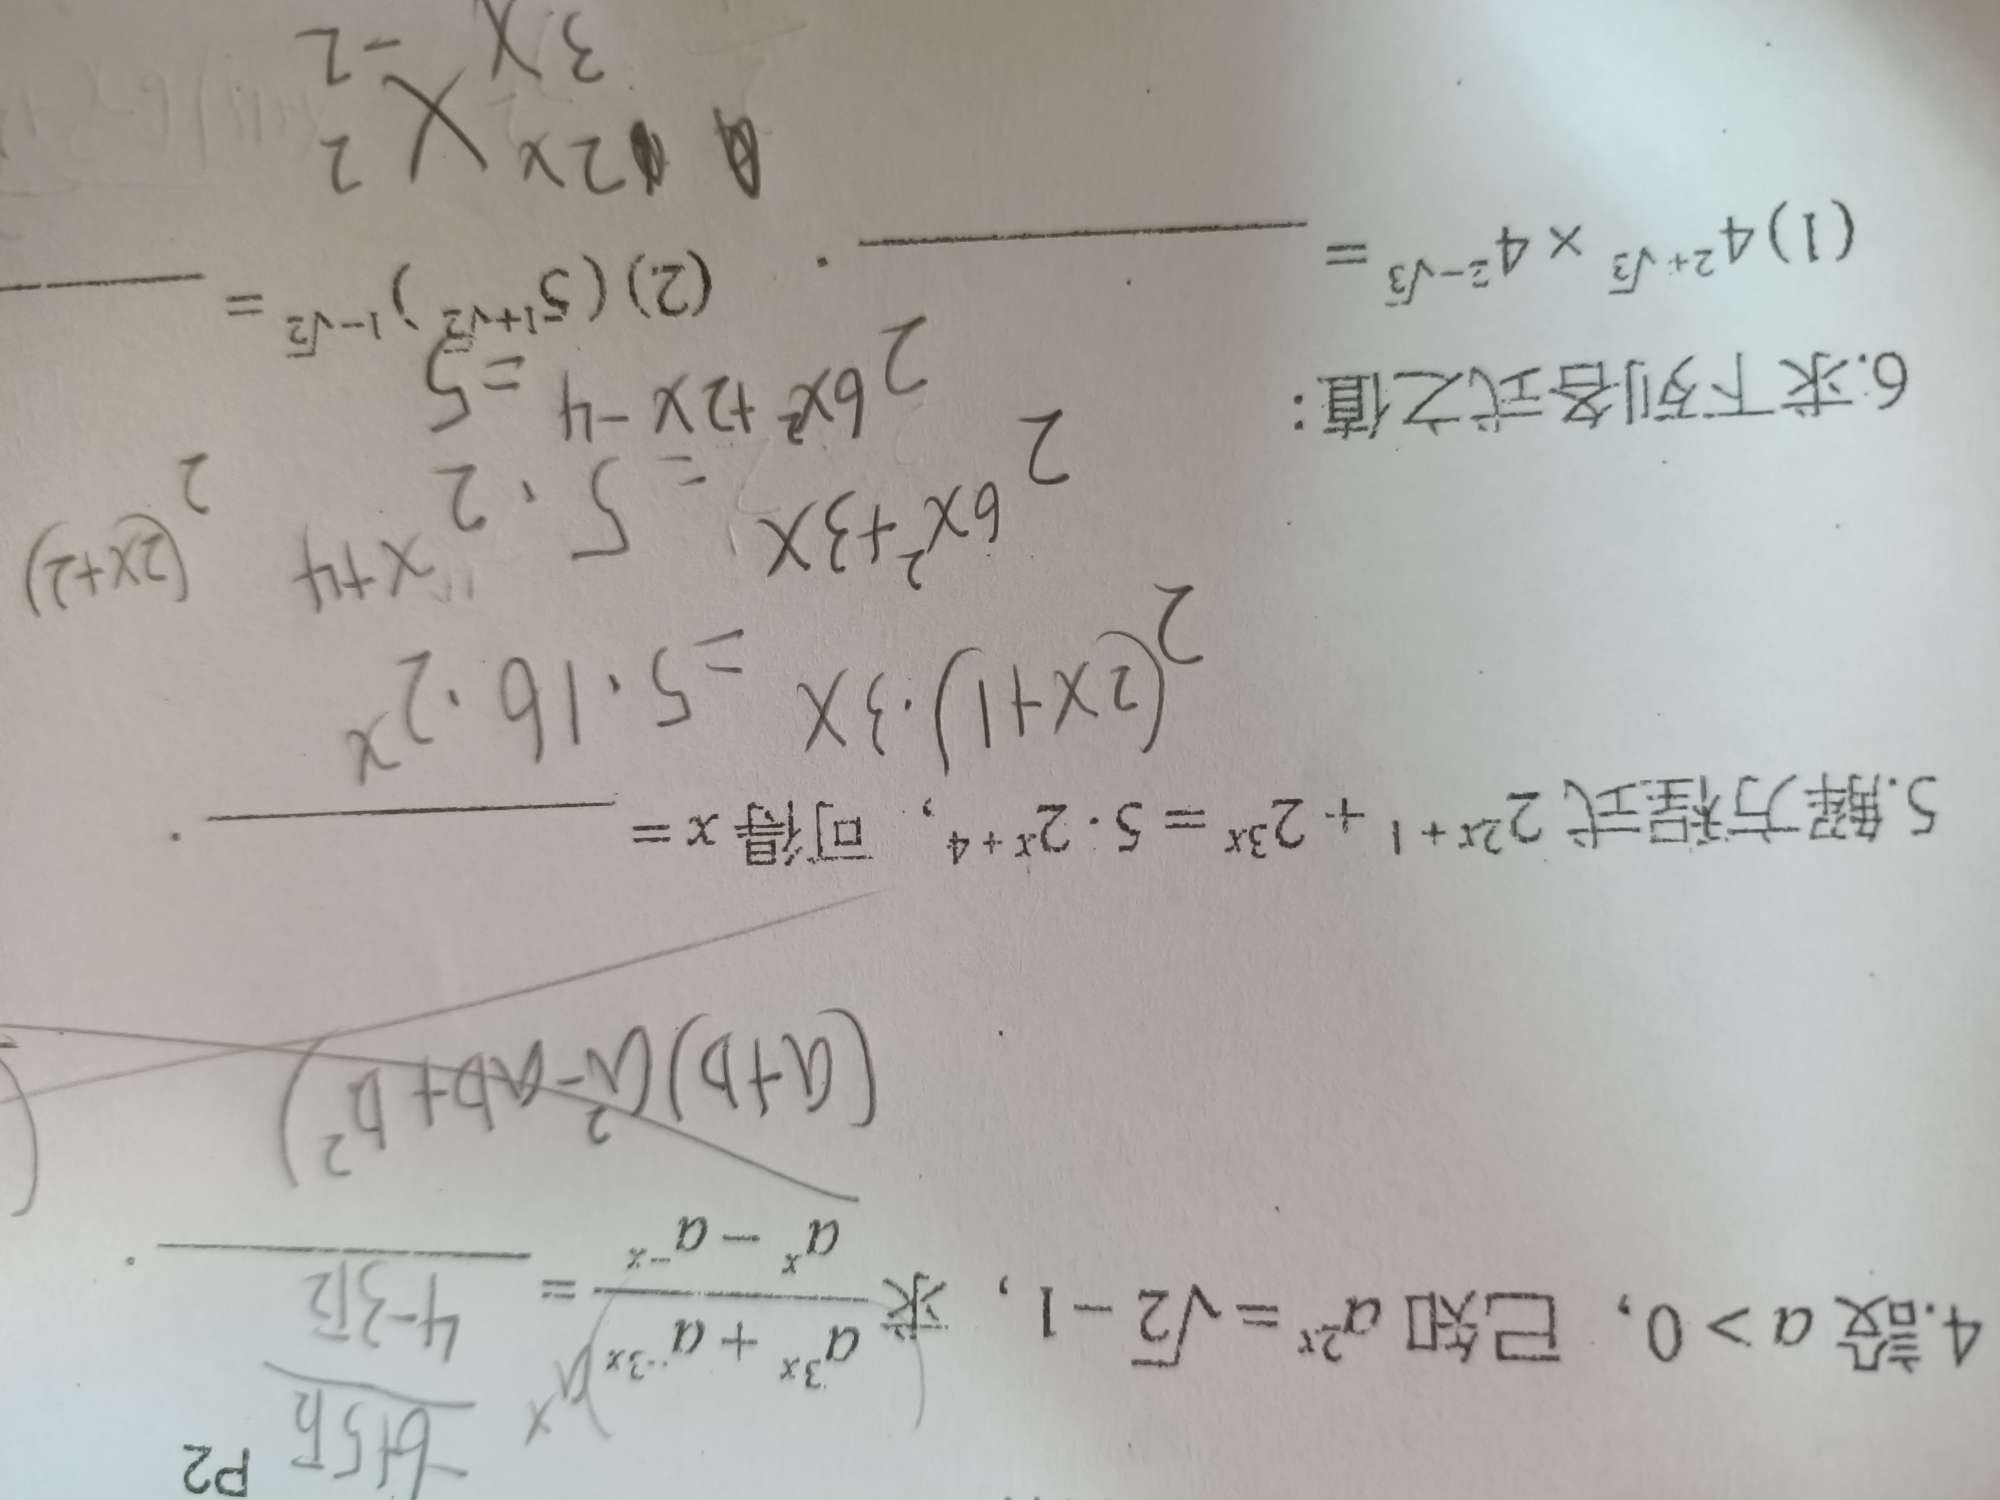 P2
-6+5√2
4.設 a > 0, 已知 a^{2x} = √2 - 1, 求 \frac{a^{3x} + a^{-3x}}{a^x - a^{-x}} = 4-3√2 .
(a+b)(a²-ab+b²)
5.解方程式 2^{2x+1} + 2^{3x} = 5·2^{x+4}, 可得 x = .
2^{(2x+1)·3x} = 5·16·2^x
2^{6x²+3x} = 5·2^{x+4} 2^{(2x+2)}
2^{6x²+2x-4} = 5
6.求下列各式之值:
(1) 4^{2+√3} × 4^{2-√3} = . (2) (5^{1+√2})^{1-√2} =
2x 2
3x -2